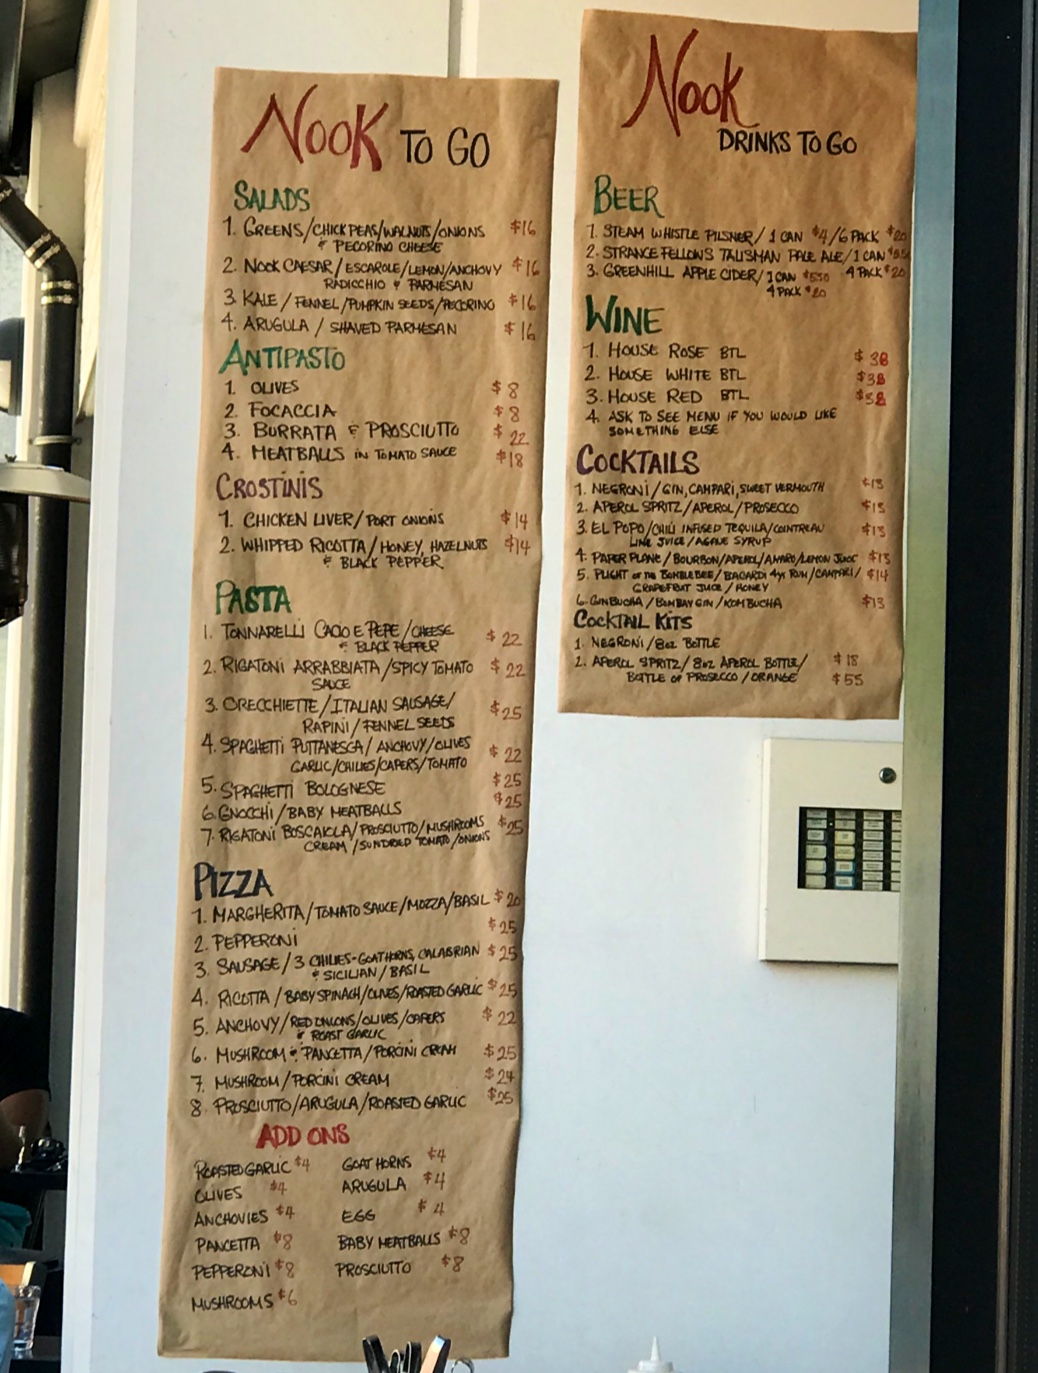 NOOK TO GO
SALADS
1. GREENS/CHICKPEAS/WALNUTS/ONIONS $16
& PECORINO CHEESE
2. NOOK CAESAR/ESCAROLE/LEMON/ANCHOVY $16
RADICCHIO & PARMESAN
3. KALE/FENNEL/PUMPKIN SEEDS/PECORINO $16
4. ARUGULA/SHAVED PARMESAN $16
ANTIPASTO
1. OLIVES $8
2. FOCACCIA $8
3. BURRATA & PROSCIUTTO $22
4. MEATBALLS IN TOMATO SAUCE $18
CROSTINIS
1. CHICKEN LIVER/PORT ONIONS $14
2. WHIPPED RICOTTA/HONEY, HAZELNUTS $14
& BLACK PEPPER
PASTA
1. TONNARELLI CACIO E PEPE/CHEESE $22
& BLACK PEPPER
2. RIGATONI ARRABBIATA/SPICY TOMATO $22
SAUCE
3. ORECCHIETTE/ITALIAN SAUSAGE/ $25
RAPINI/FENNEL SEEDS
4. SPAGHETTI PUTTANESCA/ANCHOVY/OLIVES $22
GARLIC/CHILIES/CAPERS/TOMATO
5. SPAGHETTI BOLOGNESE $25
6. GNOCCHI/BABY MEATBALLS $25
7. RIGATONI BOSCAIOLA/PROSCIUTTO/MUSHROOMS $25
CREAM/SUNDRIED TOMATO/ONIONS
PIZZA
1. MARGHERITA/TOMATO SAUCE/MOZZA/BASIL $20
2. PEPPERONI $25
3. SAUSAGE/3 CHILIES-GOATHORNS, CALABRIAN $25
& SICILIAN/BASIL
4. RICOTTA/BABY SPINACH/OLIVES/ROASTED GARLIC $25
5. ANCHOVY/RED ONIONS/OLIVES/CAPERS $22
& ROAST GARLIC
6. MUSHROOM & PANCETTA/PORCINI CREAM $25
7. MUSHROOM/PORCINI CREAM $24
8. PROSCIUTTO/ARUGULA/ROASTED GARLIC $25
ADD ONS
ROASTED GARLIC $4 GOAT HORNS $4
OLIVES $4 ARUGULA $4
ANCHOVIES $4 EGG $4
PANCETTA $8 BABY MEATBALLS $8
PEPPERONI $8 PROSCIUTTO $8
MUSHROOMS $6
NOOK
DRINKS TO GO
BEER
1. STEAM WHISTLE PILSNER/1 CAN $4/6 PACK $20
2. STRANGE FELLOWS TALISMAN PALE ALE/1 CAN
3. GREENHILL APPLE CIDER/1 CAN $5.50 4 PACK $20
4 PACK $20
WINE
1. HOUSE ROSE BTL $38
2. HOUSE WHITE BTL $38
3. HOUSE RED BTL
4. ASK TO SEE MENU IF YOU WOULD LIKE
SOMETHING ELSE
COCKTAILS
1. NEGRONI/GIN, CAMPARI, SWEET VERMOUTH $13
2. APEROL SPRITZ/APEROL/PROSECCO $13
3. EL POPO/CHILI INFUSED TEQUILA/COINTREAU $13
LIME JUICE/AGAVE SYRUP
4. PAPER PLANE/BOURBON/APEROL/AMARO/LEMON JUICE $13
5. PLIGHT OF THE BUMBLEBEE/BACARDI 4YR RUM/CAMPARI/ $14
GRAPEFRUIT JUICE/HONEY
6. GINBUCHA/BOMBAY GIN/KOMBUCHA $13
COCKTAIL KITS
1. NEGRONI/8OZ BOTTLE
2. APEROL SPRITZ/8OZ APEROL BOTTLE/ $18
BOTTLE OF PROSECCO/ORANGE $55